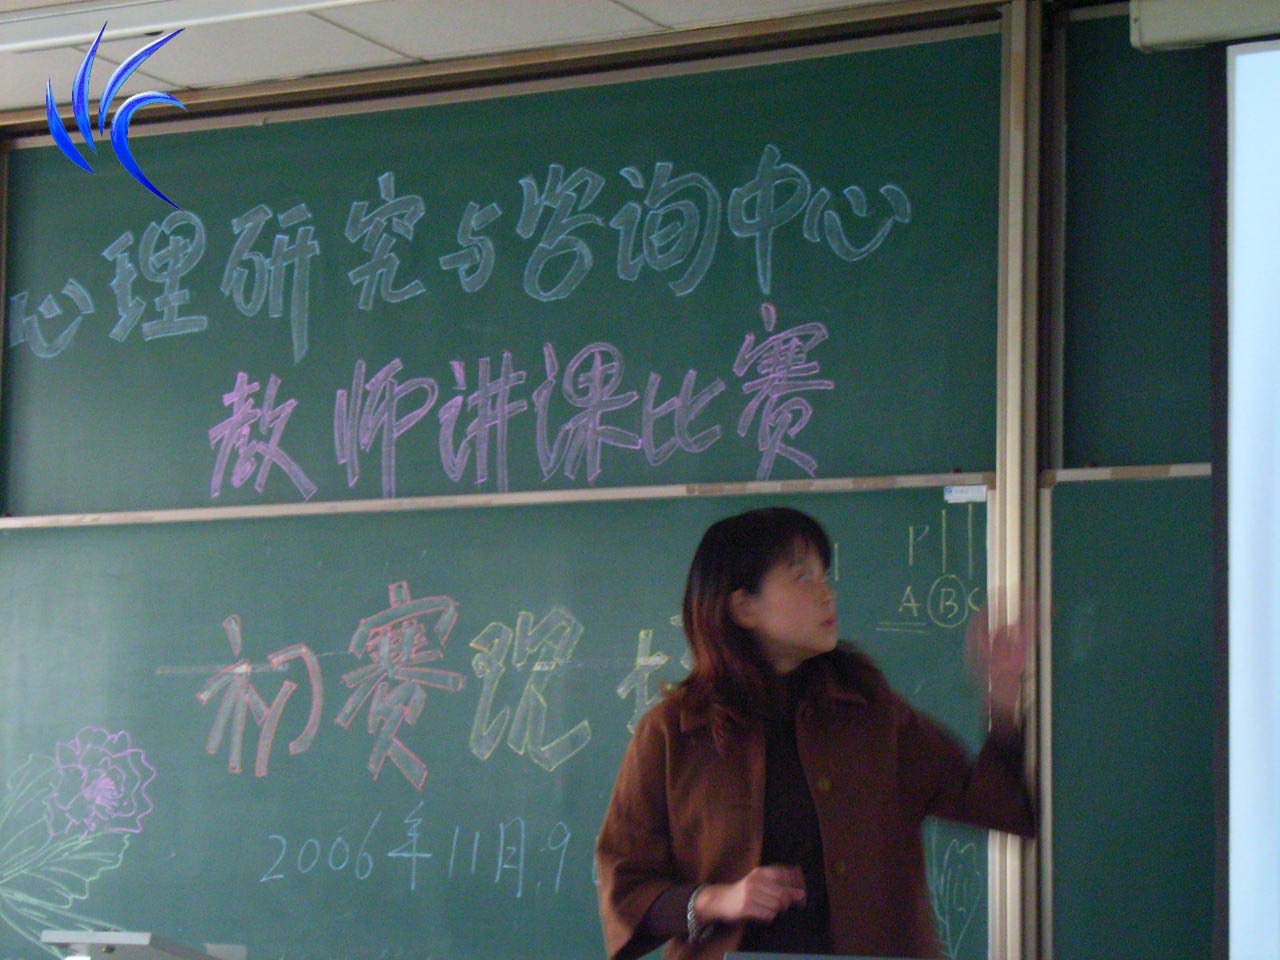 心理研究与咨询中心
教师讲课比赛
初赛现
2006年11月9
P
A B C